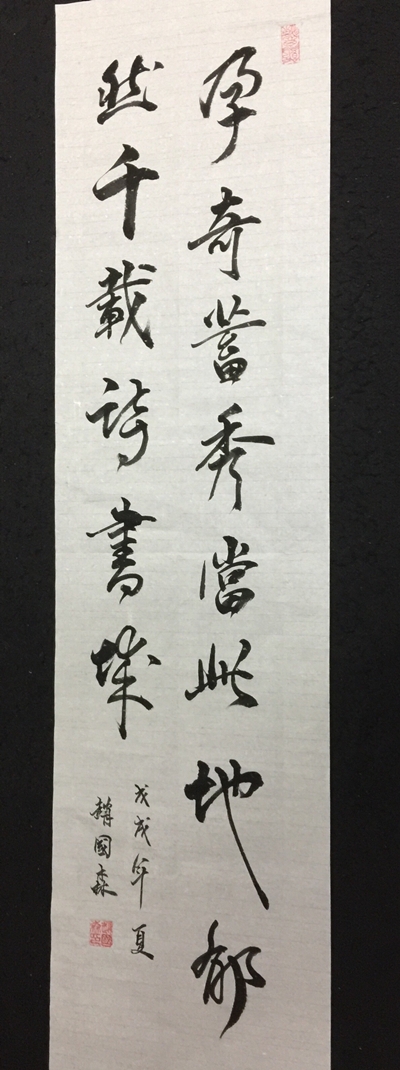 孕奇蓄秀當此地郁
然千載詩書城
戊戌年夏
趙國森